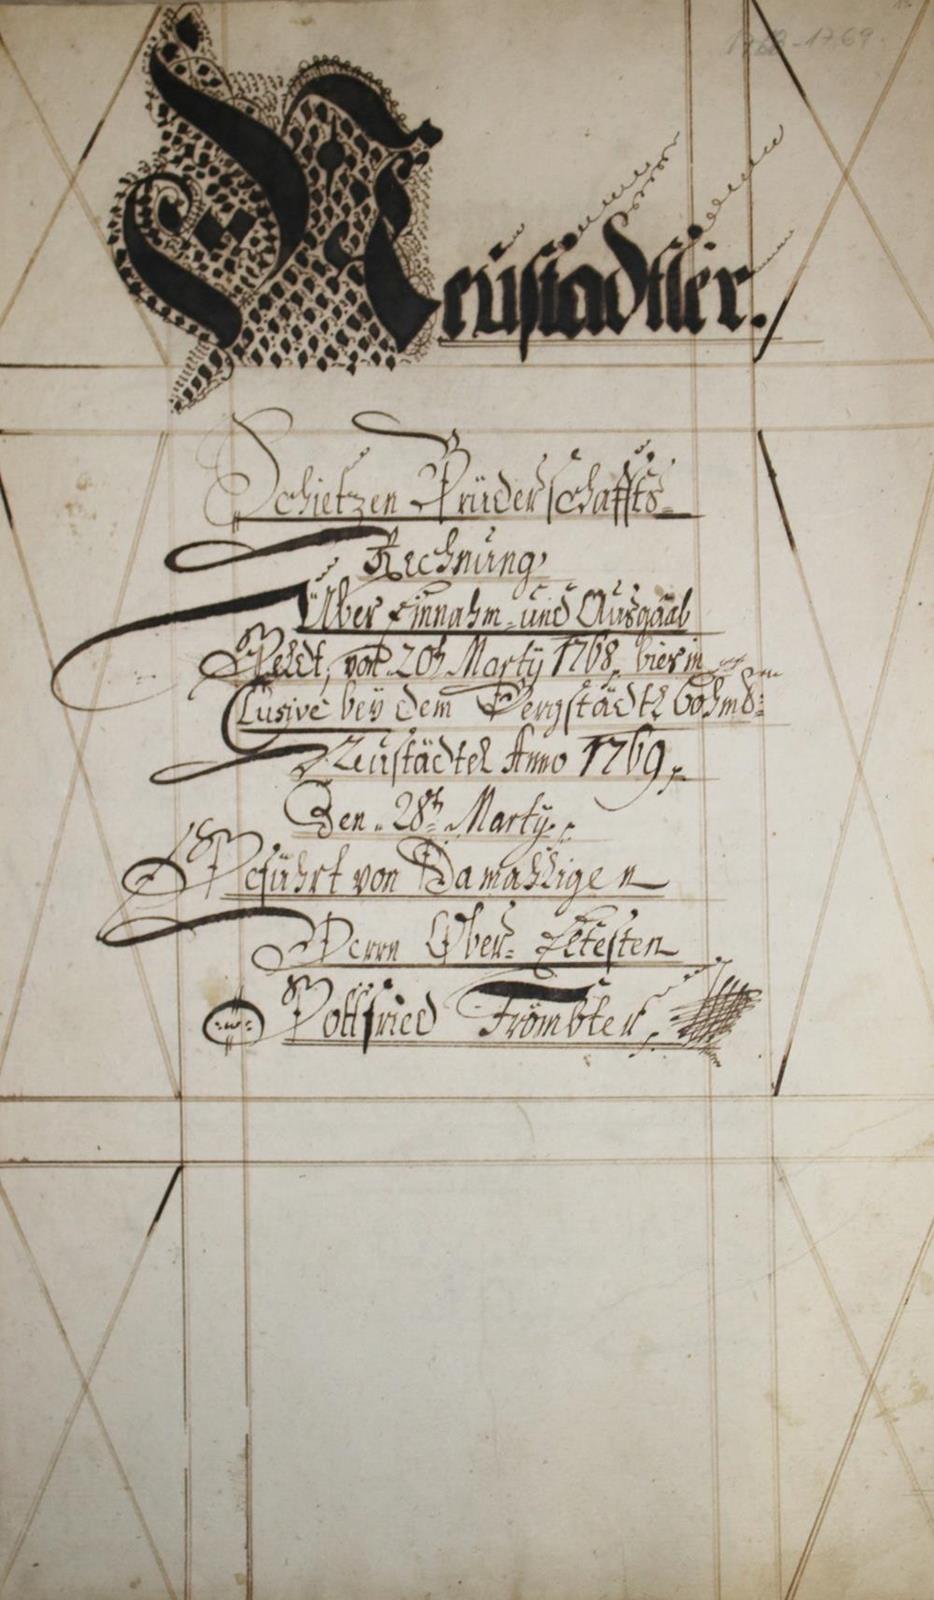 1768-1769.
Neustadtler.
Schietzen Brüderschaffts-
Rechnung,
Über Einnahm- und Ausgaab
Geldt, von 20t Marty 1768. bies in
Clusive bey dem Bergstädtl böhmb:
Neustädtel Anno 1769.
Den 28t Marty.
Geführt von Damahligen
Herrn Ober= Eltesten
Gottfried Frömbter.